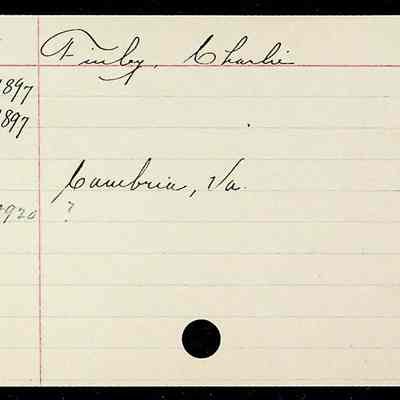 Finley, Charlie
1897
1897
Cambria, Va.
1920 ?